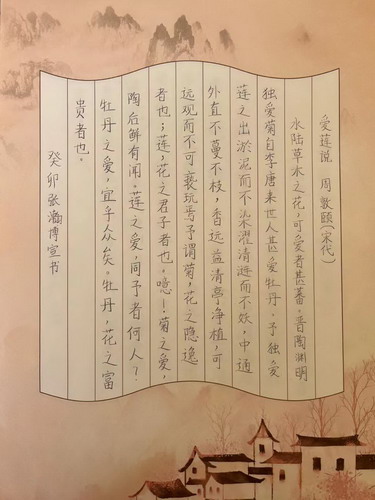 爱莲说 周敦颐(宋代)
水陆草木之花,可爱者甚蕃。晋陶渊明
独爱菊自李唐来世人甚爱牡丹。予独爱
莲之出淤泥而不染濯清涟而不妖,中通
外直不蔓不枝,香远益清亭净植,可
远观而不可亵玩焉予谓菊,花之隐逸
者也;莲,花之君子者也。噫!菊之爱,
陶后鲜有闻。莲之爱,同予者何人?
牡丹之爱,宜乎众矣。牡丹,花之富
贵者也。
癸卯张瀚博宣书